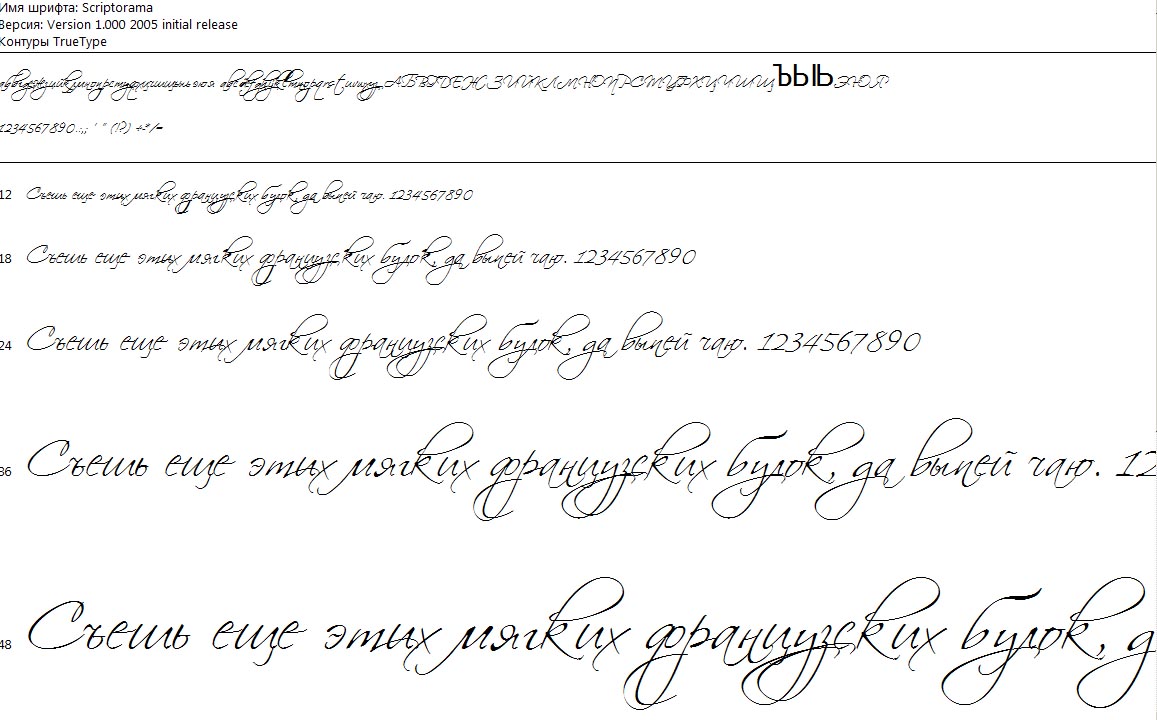 Имя шрифта: Scriptorama
Версия: Version 1.000 2005 initial release
Контуры TrueType
абвгдежзийклмнопрстуфхцчшщьыъэюя abcdefghijklmnopqrstuvwxyz АБВГДЕЖЗИЙКЛМНОПРСТУФХЦЧШЩЪЫЬЭЮЯ
1234567890.:,; ' " (!?) +-*/=
12 Съешь еще этих мягких французских булок, да выпей чаю. 1234567890
18 Съешь еще этих мягких французских булок, да выпей чаю. 1234567890
24 Съешь еще этих мягких французских булок, да выпей чаю. 1234567890
36 Съешь еще этих мягких французских булок, да выпей чаю. 12
48 Съешь еще этих мягких французских булок, д